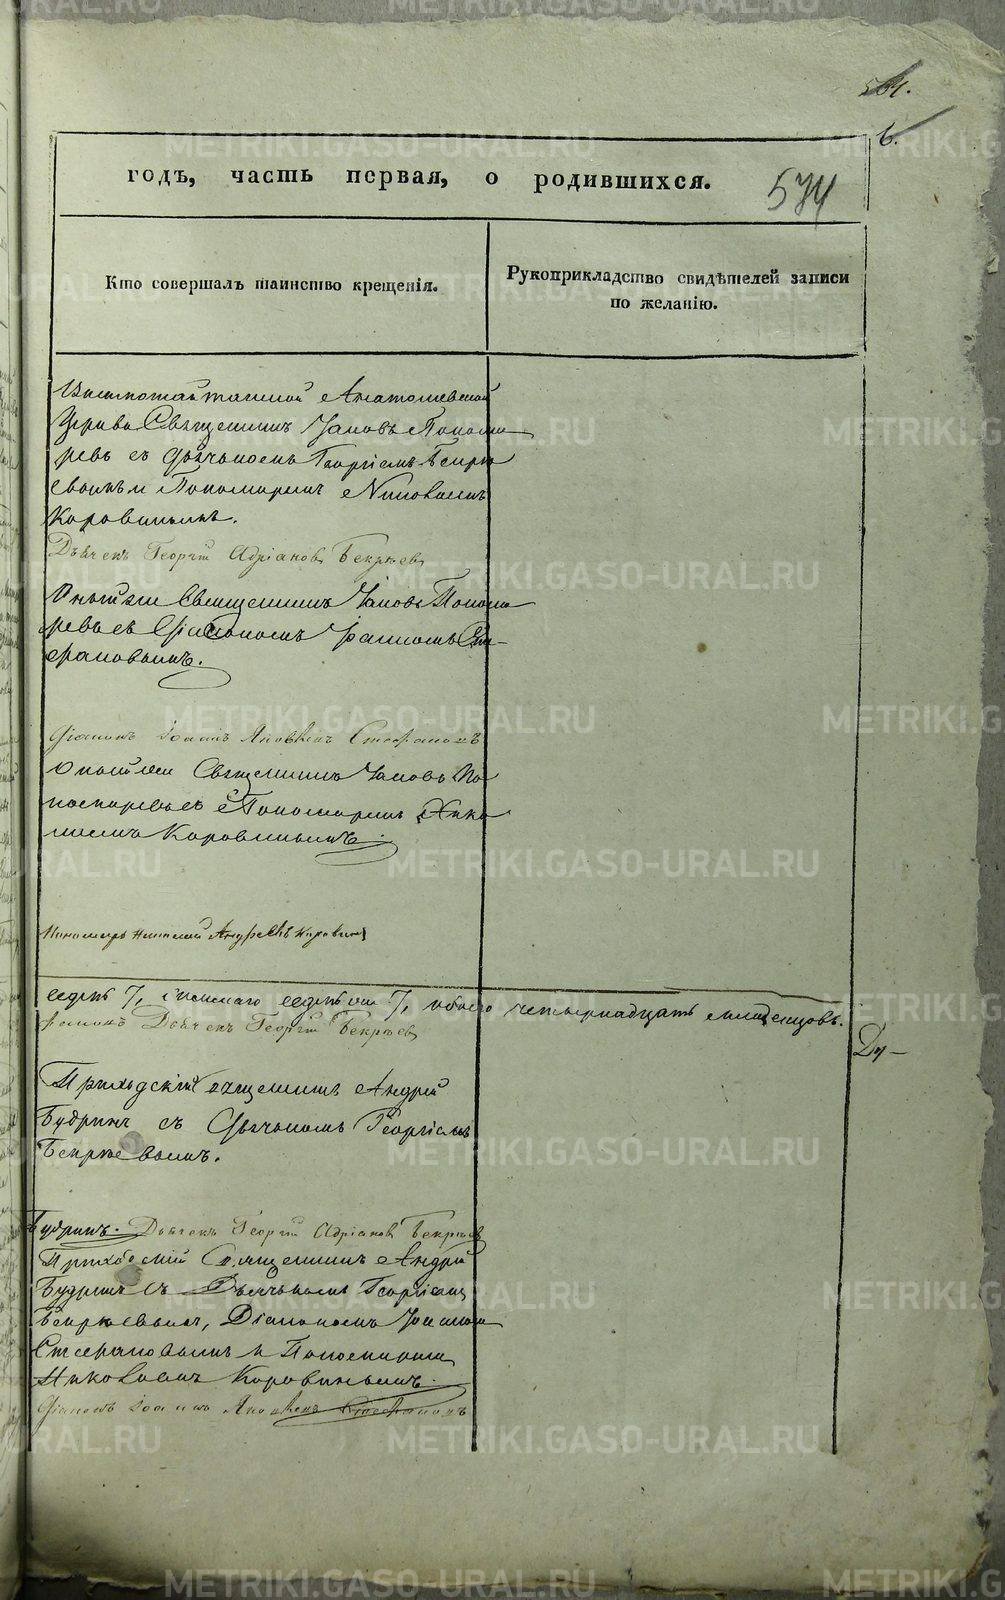 годъ, часть первая, о родившихся.
574
Кто совершалъ таинство крещенія.
Рукоприкладство свидѣтелей записи
по желанію.
Священникъ Іаковъ Попома
ревъ съ Дьячькомъ Георгіемъ Бекрѣ
евымъ и Пономаремъ Николаемъ
Коровинымъ.
Дьячекъ Георгій Адріановъ Бекрѣевъ
Оный же Священникъ Іаковъ Понома
ревъ съ Діакономъ Іоанномъ Сте-
фановымъ.
Діаконъ Іоаннъ Стефановъ
Оный же Священникъ Іаковъ По
номаревъ съ Пономаремъ Нико
лаемъ Коровинымъ.
Пономарь Николай Андреевъ Коровинъ
седмь 7, женскаго седмь 7, обоего четырнадцать младенцовъ.
Дьячекъ Георгій Бекрѣевъ
Ду-
Приходскій Священникъ Андрей
Будринъ съ Дьячькомъ Георгіемъ
Бекрѣевымъ.
Будринъ. Дьячекъ Георгій Адріановъ Бекрѣевъ
Приходскій Священникъ Андрей
Будринъ съ Дьячькомъ Георгіемъ
Бекрѣевымъ, Діакономъ Іоанномъ
Стефановымъ и Пономаремъ
Николаемъ Коровинымъ.
Діаконъ Іоаннъ Стефановъ
METRIKI.GASO-URAL.RU